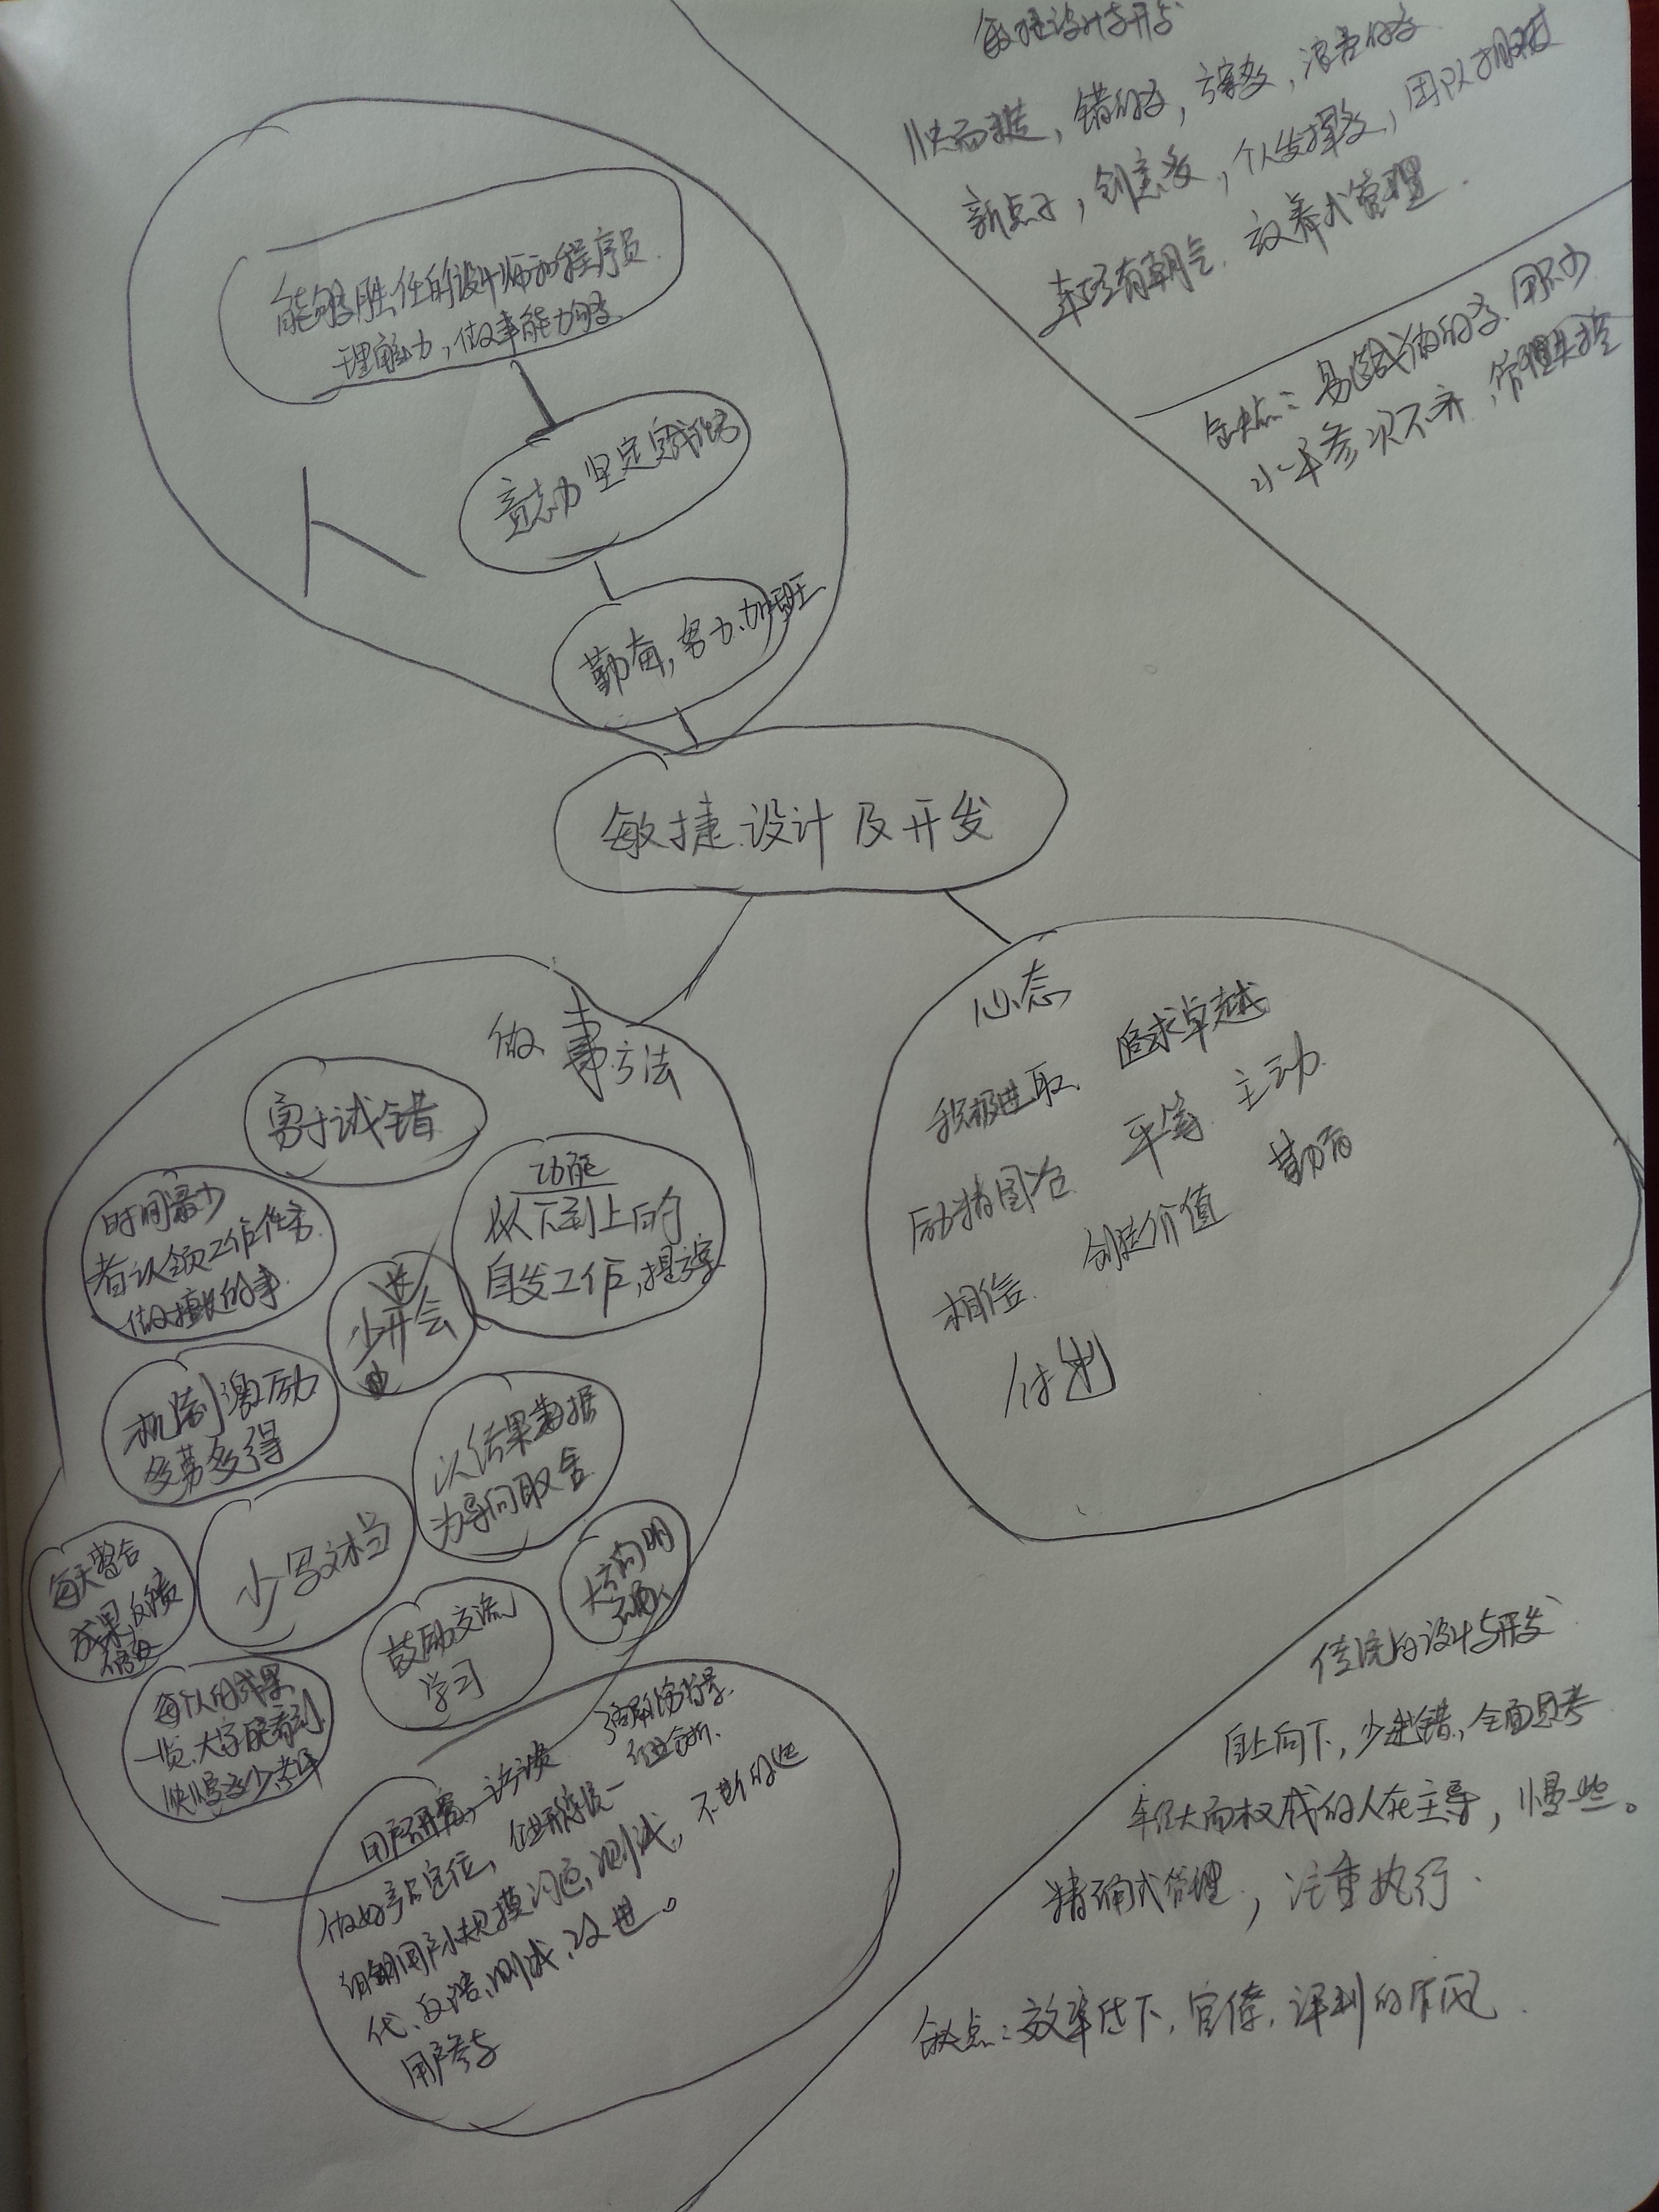 敏捷设计与开发
快而糙，错的多，方案多，浪费的多
新点子，创意多，个人发挥多，团队
年轻有朝气 放养式管理.
缺点：易 的多
水平参次不齐，管理失控
能够胜任的设计师和程序员.
理解力，做事能力够
意志力坚定
人
勤奋，努力、加班
敏捷设计及开发
做事方法
勇于试错
功能
从下到上的
自发工作，提方案
时间最少
者认领工作任务.
做擅长的事
少开会
机制激励
多劳多得
以结果数据
为导向取舍
每天整合
成果、反馈
修改
少写文档
大方向明
确
鼓励交流
学习
每个人的成果
一览、大家能看到
快慢多少
心态
积极进取 追求卓越
励精图治 平等 主动
相信 创造价值 勤奋
付出
用户研究，访谈
做好产品定位，
用户小规模 测试，不断的迭
代、反馈、测试、改进。
用户参与
传统的设计与开发
自上向下，少 错，全面思考
年纪大而权威的人在主导，慢些。
精确式管理，注重执行.
缺点：效率低下，官僚， 的作风.